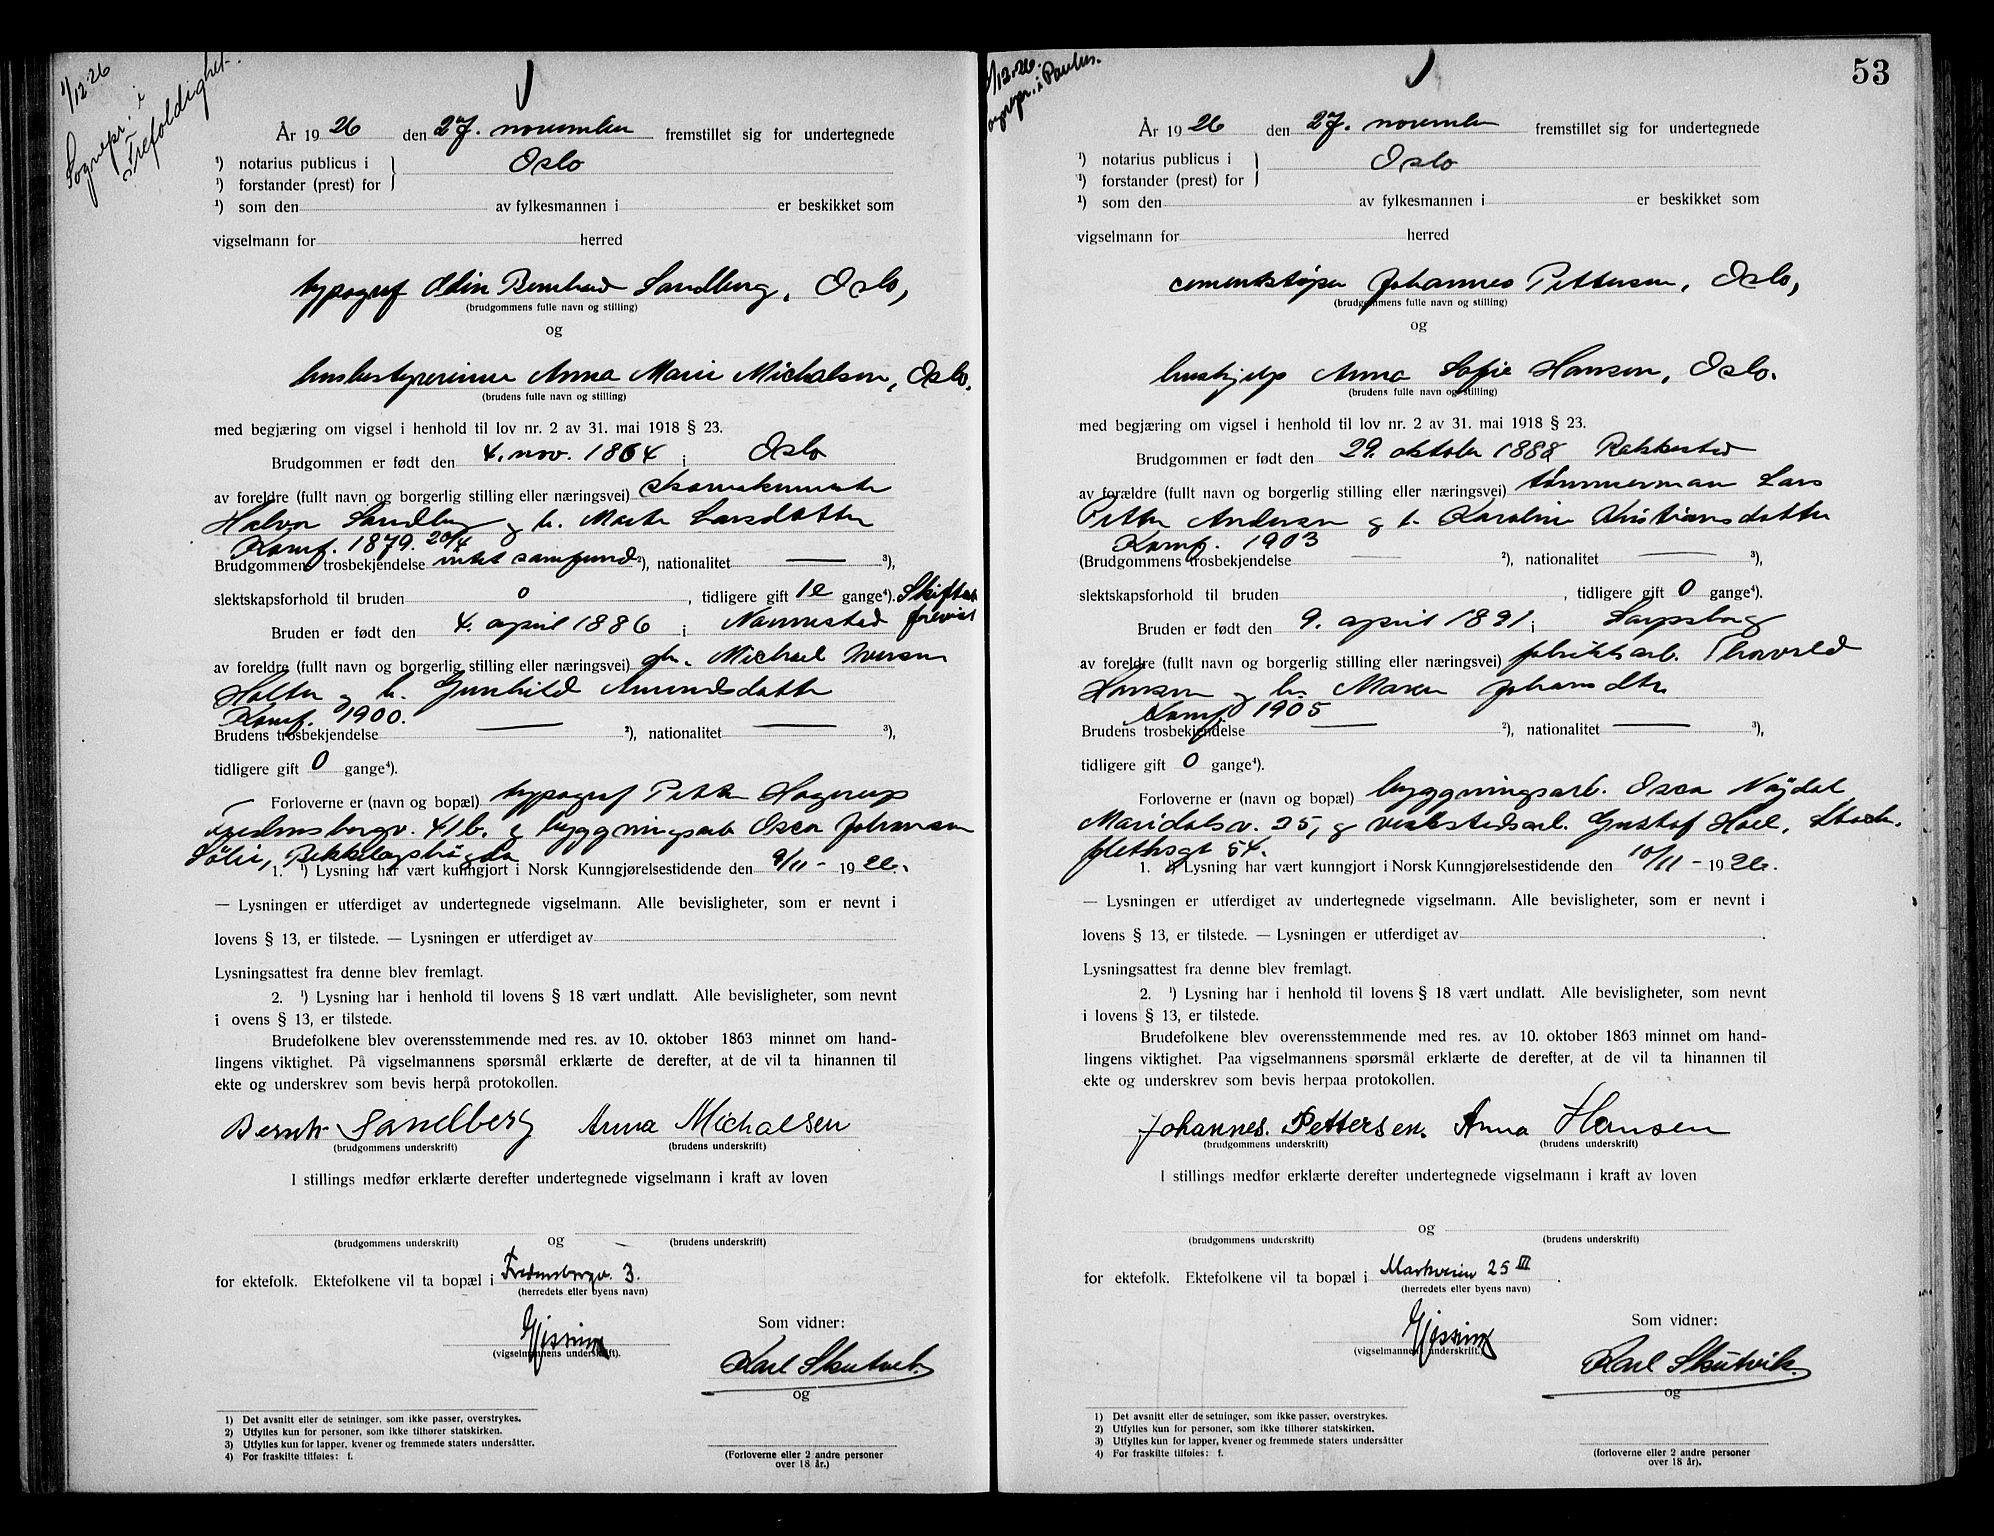 1/12-26
Sognepr. i
Trefoldighet.
År 1926 den 27. november fremstillet sig for undertegnede
¹) notarius publicus i
¹) forstander (prest) for } Oslo
¹) som den av fylkesmannen i er beskikket som
vigselmann for herred
typograf Odin Bernhard Sandberg, Oslo,
(brudgommens fulle navn og stilling)
og
husbestyrerinne Anna Marie Michalsen, Oslo.
(brudens fulle navn og stilling)
med begjæring om vigsel i henhold til lov nr. 2 av 31. mai 1918 § 23.
Brudgommen er født den 4. nov. 1864 i Oslo
av foreldre (fullt navn og borgerlig stilling eller næringsvei) skomakermester
Halvor Sandberg og h. Marte Larsdatter
Konf. 1879. 20/4
Brudgommens trosbekjendelse intet samfund ²), nationalitet — ³),
slektskapsforhold til bruden 0, tidligere gift 1e gange⁴). Skifteat
forevist
Bruden er født den 4. april 1886 i Nannestad
av foreldre (fullt navn og borgerlig stilling eller næringsvei) gb. Michael Iversen
Holter og h. Gunhild Amundsdatter
Konf. 1900.
Brudens trosbekjendelse — ²), nationalitet — ³),
tidligere gift 0 gange⁴).
Forloverne er (navn og bopæl) typograf Petter Hagerup
Fredensborgv. 41b. og byggningsarb Oscar Johansen
Sølie, Bekkelagshøgda
1. ¹) Lysning har vært kunngjort i Norsk Kunngjørelsestidende den 9/11 - 1926.
— Lysningen er utferdiget av undertegnede vigselmann. Alle bevisligheter, som er nevnt i
lovens § 13, er tilstede. — Lysningen er utferdiget av
Lysningsattest fra denne blev fremlagt.
2. ¹) Lysning har i henhold til lovens § 18 vært undlatt. Alle bevisligheter, som nevnt
i ovens § 13, er tilstede.
Brudefolkene blev overensstemmende med res. av 10. oktober 1863 minnet om hand-
lingens viktighet. På vigselmannens spørsmål erklærte de derefter, at de vil ta hinannen til
ekte og underskrev som bevis herpå protokollen.
Bernh. Sandberg Anna Michalsen
(brudgommens underskrift) (brudens underskrift)
I stillings medfør erklærte derefter undertegnede vigselmann i kraft av loven
og
(brudgommens underskrift) (brudens underskrift)
for ektefolk. Ektefolkene vil ta bopæl i Fredensborgv. 3.
(herredets eller byens navn)
Gjessing
(vigselmannens underskrift).
Som vidner:
Karl Skutvik.
og
1) Det avsnitt eller de setninger, som ikke passer, overstrykes.
2) Utfylles kun for personer, som ikke tilhører statskirken.
3) Utfylles kun for lapper, kvener og fremmede staters undersåtter.
4) For fraskilte tilføies: f.
(Forloverne eller 2 andre personer
over 18 år.)
53
1/12-26.
ognepr. i Paulus.
År 1926 den 27. november fremstillet sig for undertegnede
¹) notarius publicus i
¹) forstander (prest) for } Oslo
¹) som den av fylkesmannen i er beskikket som
vigselmann for herred
cementstøper Johannes Pettersen, Oslo,
(brudgommens fulle navn og stilling)
og
hushjelp Anna Sofie Hansen, Oslo.
(brudens fulle navn og stilling)
med begjæring om vigsel i henhold til lov nr. 2 av 31. mai 1918 § 23.
Brudgommen er født den 29. oktober 1888 Rakkestad
av forældre (fullt navn og borgerlig stilling eller næringsvei) tømmermann Lars
Petter Andersen og h. Karoline Kristiansdatter
Konf. 1903
(Brudgommens trosbekjendelse — ²), nationalitet — ³),
slektskapsforhold til bruden , tidligere gift 0 gange⁴).
Bruden er født den 9. april 1891 i Sarpsborg
av foreldre (fullt navn og borgerlig stilling eller næringsvei) fabrikkarb. Thorvald
Hansen og h. Maren Johansdtr
Konf. 1905
Brudens trosbekjendelse — ²), nationalitet — ³),
tidligere gift 0 gange⁴).
Forloverne er (navn og bopæl) byggningsarb. Oscar Nøjdal
Maridalsv. 25, og verkstedsarb. Gustof Hoel, Stock-
flethsgt 54.
1. ¹) Lysning har vært kunngjort i Norsk Kunngjørelsestidende den 10/11 - 1926.
— Lysningen er utferdiget av undertegnede vigselmann. Alle bevisligheter, som er nevnt i
lovens § 13, er tilstede. — Lysningen er utferdiget av .
Lysningsattest fra denne blev fremlagt.
2. ¹) Lysning har i henhold til lovens § 18 vært undlatt. Alle bevisligheter, som nevnt
i lovens § 13, er tilstede.
Brudefolkene blev overensstemmende med res. av 10. oktober 1863 minnet om hand-
lingens viktighet. Paa vigselmannens spørsmål erklærte de derefter, at de vil ta hinannen til
ekte og underskrev som bevis herpaa protokollen.
Johannes. Pettersen. Anna Hansen
(brudgommens underskrift) (brudens underskrift)
I stillings medfør erklærte derefter undertegnede vigselmann i kraft av loven
og
(brudgommens underskrift) (brudens underskrift)
for ektefolk. Ektefolkene vil ta bopæl i Markveien 25 III.
(herredets eller byens navn)
Gjessing
(vigselmannens underskrift.)
Som vidner:
Karl Skutvik.
og
1) Det avsnitt eller de setninger, som ikke passer, overstrykes.
2) Utfylles kun for personer, som ikke tilhører statskirken.
3) Utfylles kun for lapper, kvener og fremmede staters undersåtter
4) For fraskilte tilføies: f.
(forloverne eller 2 andre personer
over 18 år).